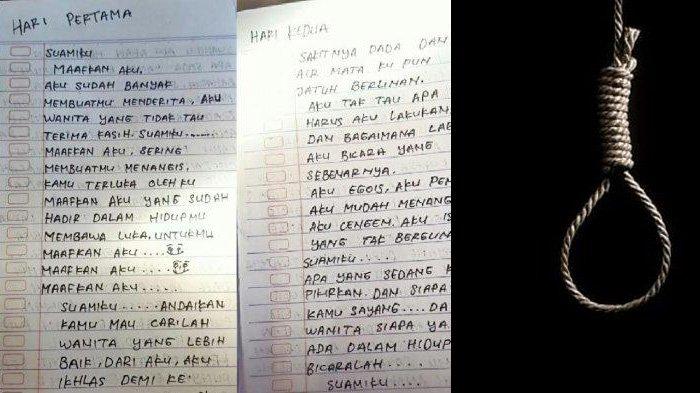 HARI PERTAMA
SUAMIKU
MAAFKAN AKU.
AKU SUDAH BANYAK
MEMBUATMU MENDERITA, AKU
WANITA YANG TIDAK TAU
TERIMA KASIH. SUAMIKU......
MAAFKAN AKU, SERING
MEMBUATMU MENANGIS.
KAMU TERLUKA OLEH KU
MAAFKAN AKU YANG SUDAH
HADIR DALAM HIDUPMU
MEMBAWA LUKA, UNTUKMU
MAAFKAN AKU....
MAAFKAN AKU....
MAAFKAN AKU.....
SUAMIKU......ANDAIKAN
KAMU MAU CARILAH
WANITA YANG LEBIH
BAIK, DARI AKU, AKU
IKHLAS DEMI KE
HARI KEDUA
SAKITNYA DADA DAN
AIR MATA KU PUN
JATUH BERLINAN.
AKU TAK TAU APA
HARUS AKU LAKUKAN
DAN BAGAIMANA LAG
AKU BICARA YANG
SEBENARNYA.
AKU EGOIS, AKU PEM
AKU MUDAH MENANG
AKU CENGEM, AKU IS
YANG TAK BERGUN
SUAMIKU.....
APA YANG SEDANG K
PIKIRKAN. DAN SIAPA
KAMU SAYANG.... DA
WANITA SIAPA YA
ADA DALAM HIDUP
BICARALAH....
SUAMIKU....